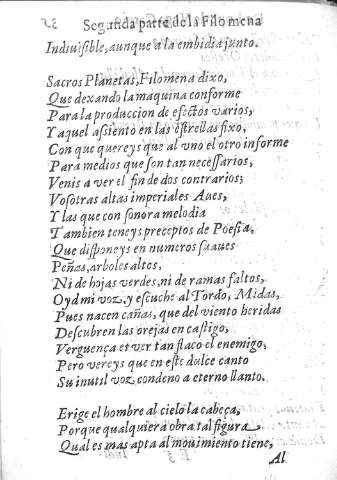 Segunda parte de la Filomena
Indiuisible, aunque a la embidia junto.
Sacros Planetas, Filomena dixo,
Que dexando la maquina conforme
Para la produccion de efectos varios,
Y aquel assiento en las estrellas fixo,
Con que quereys que al vno el otro informe
Para medios que son tan necessarios,
Venis a ver el fin de dos contrarios;
Vosotras altas imperiales Aues,
Y las que con sonora melodia
Tambien teneys preceptos de Poesia,
Que disponeys en numeros suaues
Peñas, arboles altos,
Ni de hojas verdes, ni de ramas faltos,
Oyd mi voz, y escuche al Tordo, Midas,
Pues nacen cañas, que del viento heridas
Descubren las orejas en castigo,
Verguença et ver tan flaco el enemigo;
Pero vereys que en este dulce canto
Su inutil voz condeno a eterno llanto.
Erige el hombre al cielo la cabeça,
Porque qualquiera obra tal figura
Qual es mas apta al mouimiento tiene,
Al